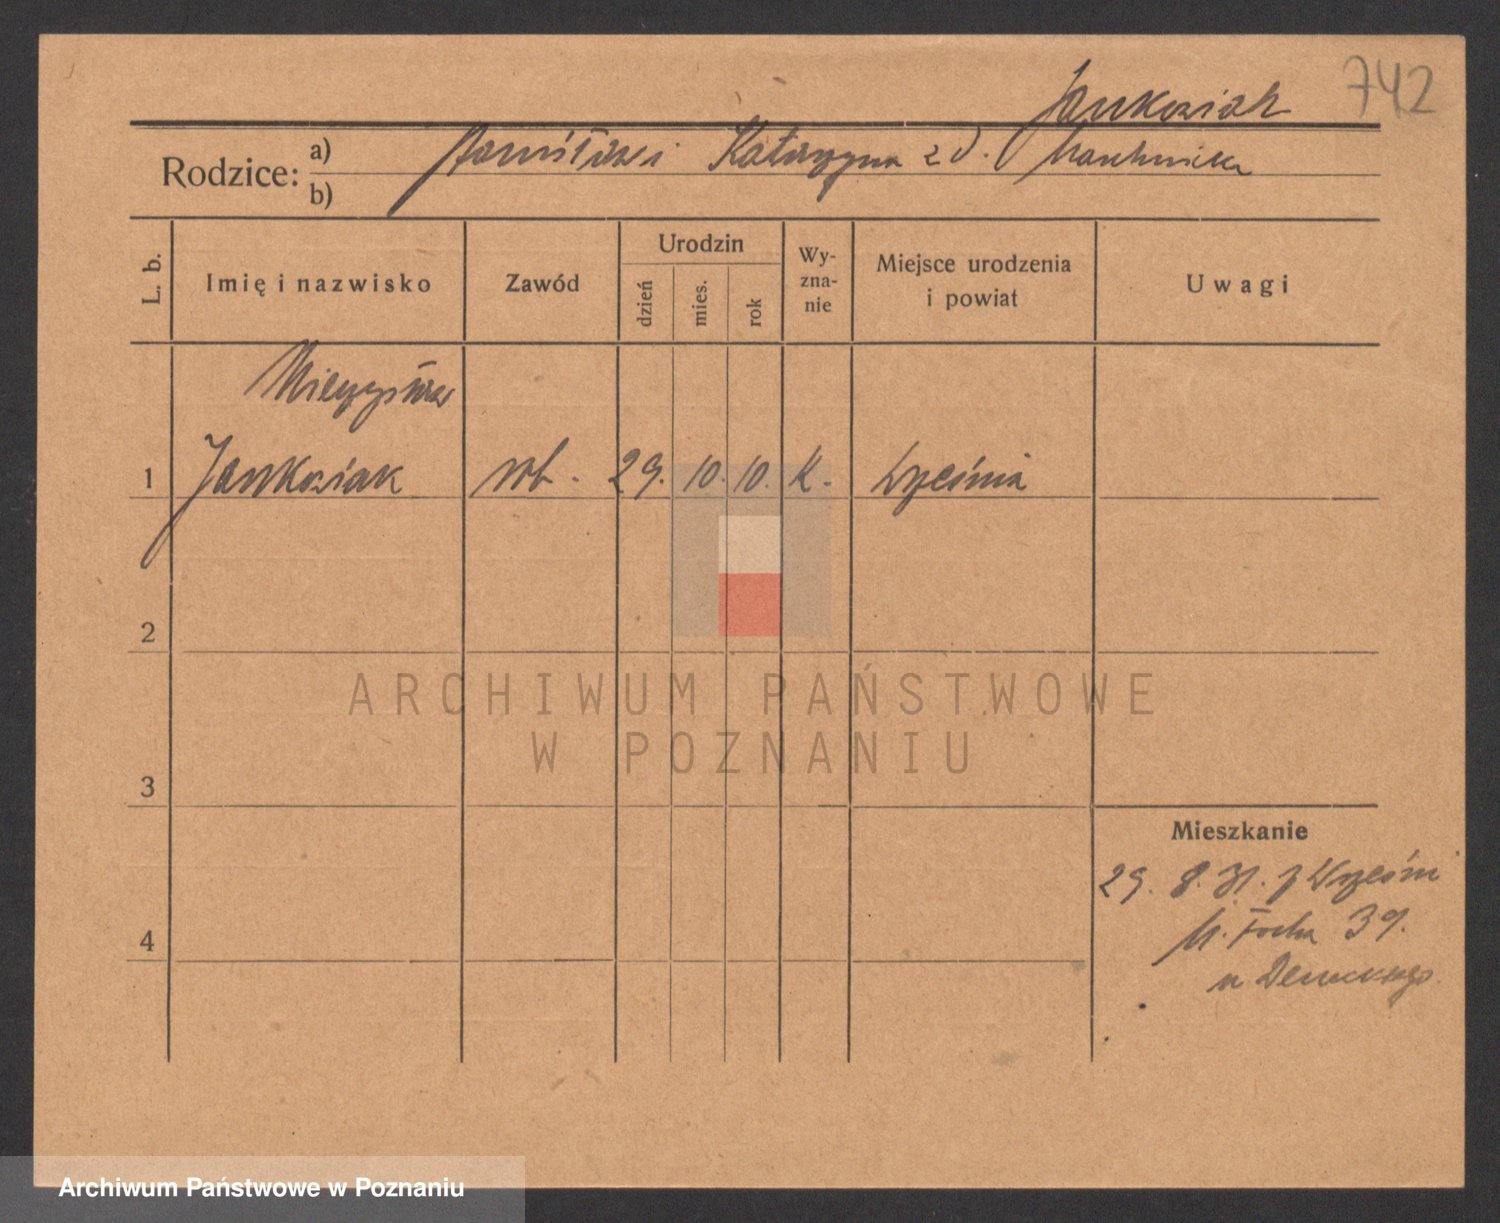 742
Jankowiak
Rodzice: a) Stanisław i Katarzyna z d.
b)
L. b.
Imię i nazwisko
Zawód
Urodzin
dzień
mies.
rok
Wy-
zna-
nie
Miejsce urodzenia
i powiat
Uwagi
Mieczysław
1 Jankowiak rob. 29. 10. 10. k. Września
2
3
4
ARCHIWUM PAŃSTWOWE
W POZNANIU
Mieszkanie
29. 8. 31. z Wrześni
M. Focha 39.
u
Archiwum Państwowe w Poznaniu